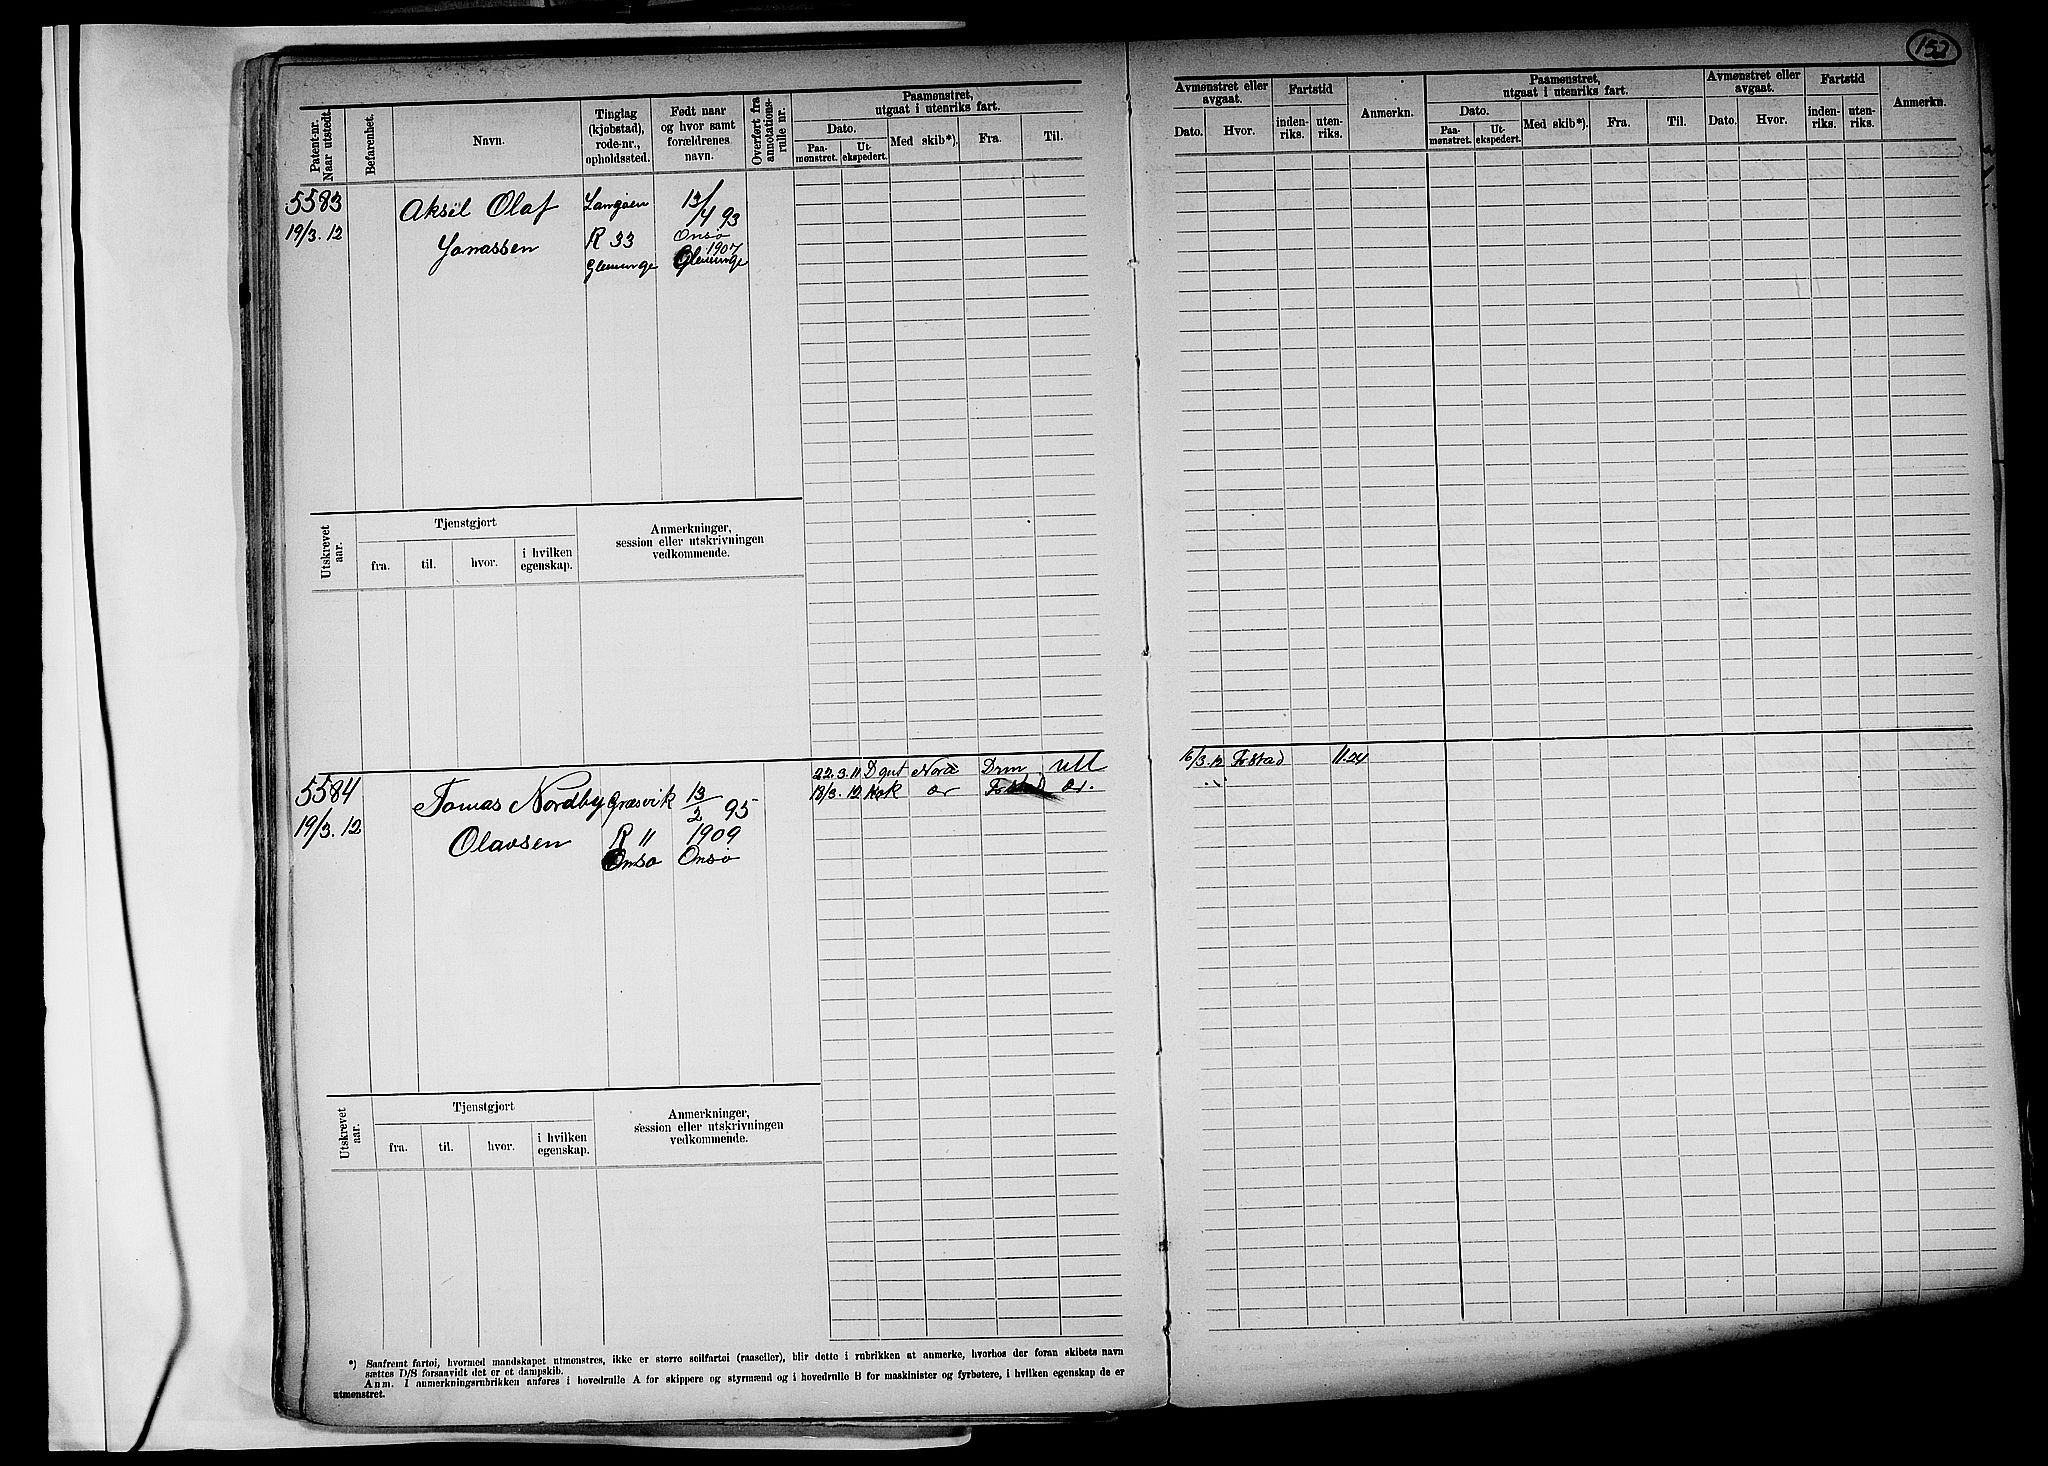 152
Patent-nr. Naar utstedt.
Befarenhet.
Navn.
Tinglag (kjøbstad), rode-nr., opholdssted.
Født naar og hvor samt forældrenes navn.
Overført fra annotations-rulle nr.
Paamønstret, utgaat i utenriks fart.
Dato.
Paa-mønstret.
Ut-ekspedert.
Med skib*).
Fra.
Til.
5583
19/3. 12
Aksel Olaf
Jonassen
Langøen
R 33
Glemminge
13/4 93
Onsø
1907
Glemminge
Utskrevet aar.
Tjenstgjort
fra.
til.
hvor.
i hvilken egenskap.
Anmerkninger,
session eller utskrivningen
vedkommende.
5584
19/3. 12
Tomas Nordby
Olavsen
Græsvik
R "
Onsø
13/2 95
1909
Onsø
22.3.11 D gut Drm Utl
18/3. 12 Kok
Utskrevet aar.
Tjenstgjort
fra.
til.
hvor.
i hvilken egenskap.
Anmerkninger,
session eller utskrivningen
vedkommende.
*) Saafremt fartøi, hvormed mandskapet utmønstres, ikke er større seilfartøi (raaseiler), blir dette i rubrikken at anmerke, hvorhos der foran skibets navn
sættes D/S forsaavidt det er et dampskib.
Anm. I anmerkningsrubrikken anføres i hovedrulle A for skippere og styrmænd og i hovedrulle B for maskinister og fyrbøtere, i hvilken egenskap de er
utmønstret.
Avmønstret eller avgaat.
Dato.
Hvor.
Fartstid
inden-riks.
uten-riks.
Anmerkn.
Paamønstret,
utgaat i utenriks fart.
Dato.
Paa-mønstret.
Ut-ekspedert.
Med skib*).
Fra.
Til.
Avmønstret eller avgaat.
Dato.
Hvor.
Fartstid
inden-riks.
uten-riks.
Anmerkn.
16/3. 12 Frstad 11.24